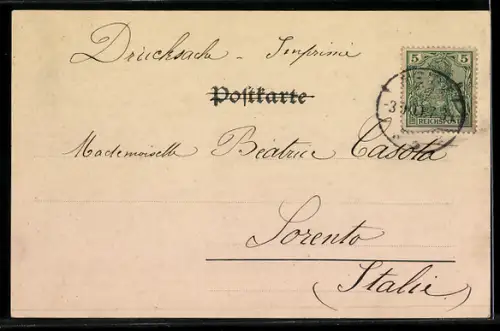 Drucksache - Imprimé
Postkarte
5 5
REICHSPOST
Mademoiselle Béatrice Casola
Sorento
(Italie)